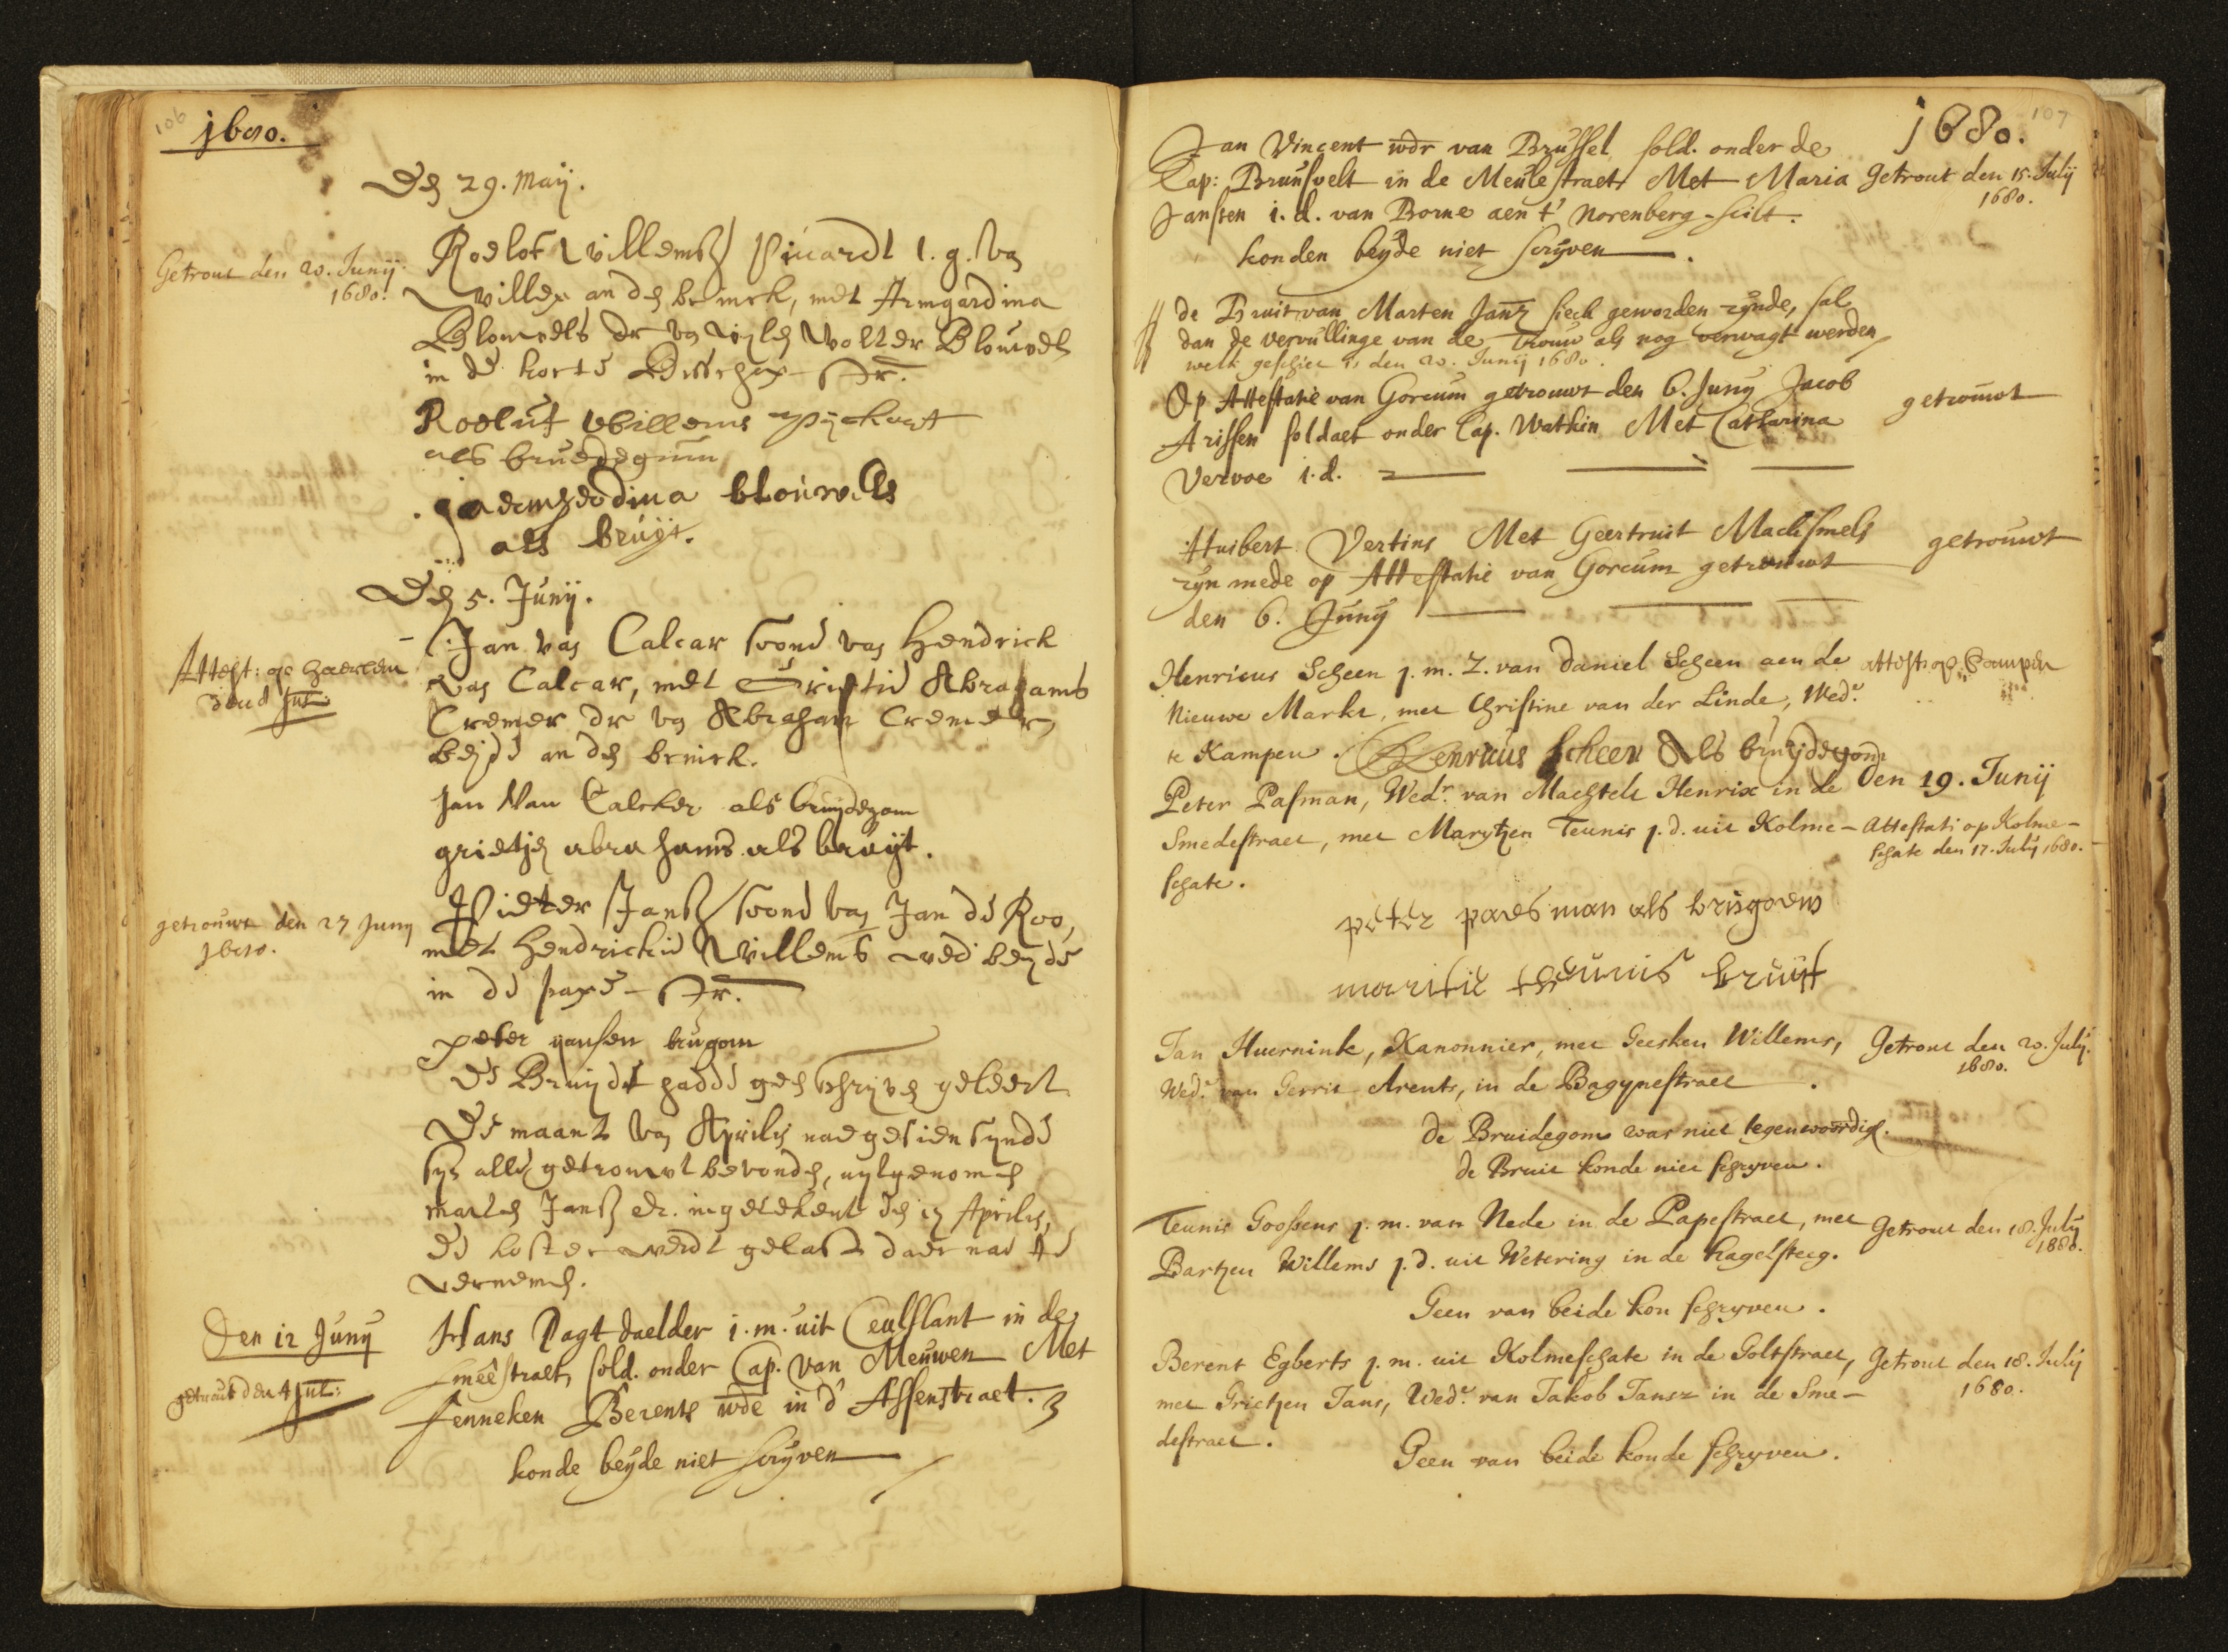 106
1680.
Den 29. Maij.
Getrout den 20. Junij
1680.
Roelof Willemsz Picardt l. g. van
Willem an den brinck, met Armgardina
Blouwels dr van wijlen Wolter Blouwels
in de korte Bisschop str.
Roeluf Willems
als bruedegum
blouwels
als bruijt.
Den 5. Junij.
Attest: op haerlem
Jul
Jan van Calcar soone van Hendrick
van Calcar, met Grietie Abrahams
Cremer dr van Abraham Cremer,
beijde an den brinck.
Jan Van Calcker als bruijdegom
grietjen abrahams als bruijt.
getrouwt den 27 Junij
1680.
Pieter Jansz soone van Jan de Roo,
met Hendrickie Willems wed beijde
in de pape str.
peter jansen brugom
De Bruijdt hadde geen schrijven geleert
De maant van Aprilis naegesien synde
syn alle getrouwt bevonden, uytgenomen
marten Jansz etc. ingetekent den Aprilis,
de koster werdt gelast daer nae te
vernemen.
Den 12 Junij
getrout den 4 Jul:
Hans Dagt daelder j. m. uit Ceulslant in de
smêe straet, sold. onder Cap. Van Meuwen Met
Jenneken Berents wde in d' Assenstraet.
konde beyde niet scryven
107
1680.
Jan Vincent wdr van Brussel sold. onder de
Cap: Brunsvelt in de Meule straet Met Maria
Getrout den 15. Julij
1680.
Jansen i. d. van Borne aen t' Norenberg-scilt.
konden beyde niet scryven.
de Bruit van Marten Jansz sieck geworden zynde, sal
dan de vervullinge van de trouw als nog verwagt werden
welk geschiet is den 20. Junij 1680.
Op Attestatie van Gorcum getrouwt den 6. Juny Jacob
getrouwt
Arissen soldaet onder Cap. Wathin Met Catharina
Vervoe i. d.
Huibert Vertins Met Geertruit Machsmels
getrouwt
zyn mede op Attestatie van Gorcum getrouwt
den 6. Juny
Henricus Scheen j. m. Z. van Daniel Scheen aen de
attest op Campen
Nieuwe Markt, met Christine van der Linde, Wede
te Kampen. Henricus Scheen Als bruijdegom
Peter Pasman, Wedr. van Machtelt Henrix in de
Den 19. Junij
Smedestraet, met Marytjen Teunis j. d. uit Kolme-
Attestati op Kolme-
schate den 17. July 1680.
schate.
peter paesman als brugoem
maritie theunis bruijt
Jan Huernink, Kanonnier, met Geesken Willems,
Getrout den 20. July.
1680.
Wede. van Gerrit Arents, in de Bagynestraet.
de Bruidegom was niet tegenwoordig.
de Bruit konde niet schryven.
Teunis Goossens j. m. van Nede in de Papestraet, met
Getrout den 18. July
1680.
Bartjen Willems j. d. uit Wetering in de Hagelsteeg.
Geen van beide kon schryven.
Berent Egberts j. m. uit Kolmeschate in de Goltstraet,
Getrout den 18. Julij
1680.
met Grietjen Jans, Wede. van Jakob Jansz in de Sme-
destraet.
Geen van beide konde schryven.